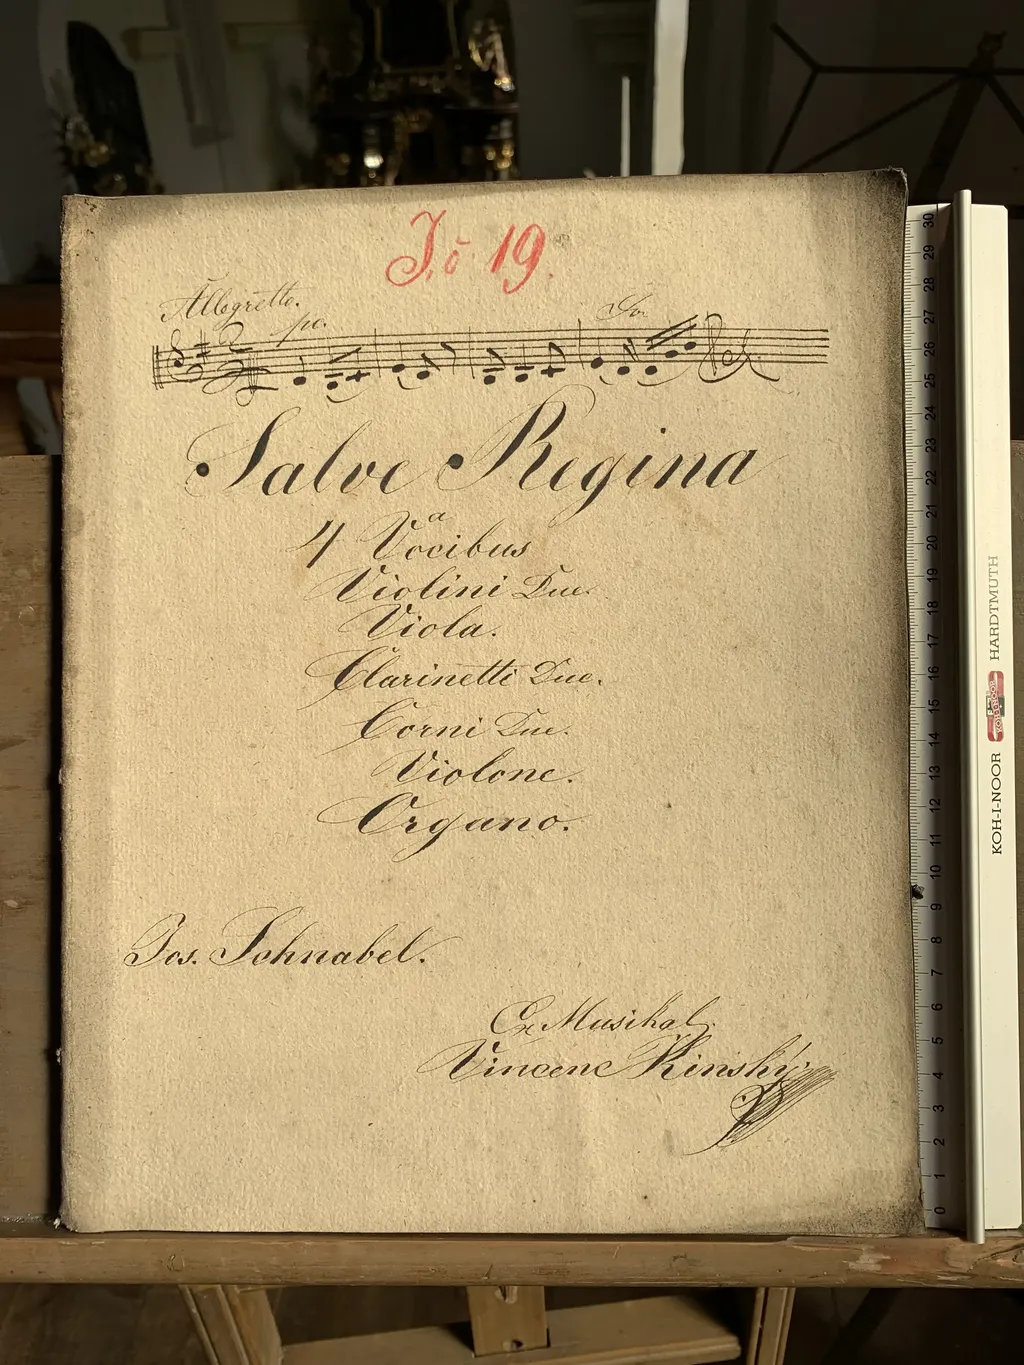 No 19.
Allegretto.
po.
Salve Regina
a
4 Vocibus
Violini Due.
Viola.
Clarinetti Due.
Corni Due.
Violone.
Organo.
Jos. Schnabel.
Ex Musikal.
Vincenc Kinský
30
29
28
27
26
25
24
23
22
21
20
19
18
17
16
15
14
13
12
11
10
9
8
7
6
5
4
3
2
1
0
KOH-I-NOOR HARDTMUTH
KOH-I-NOOR